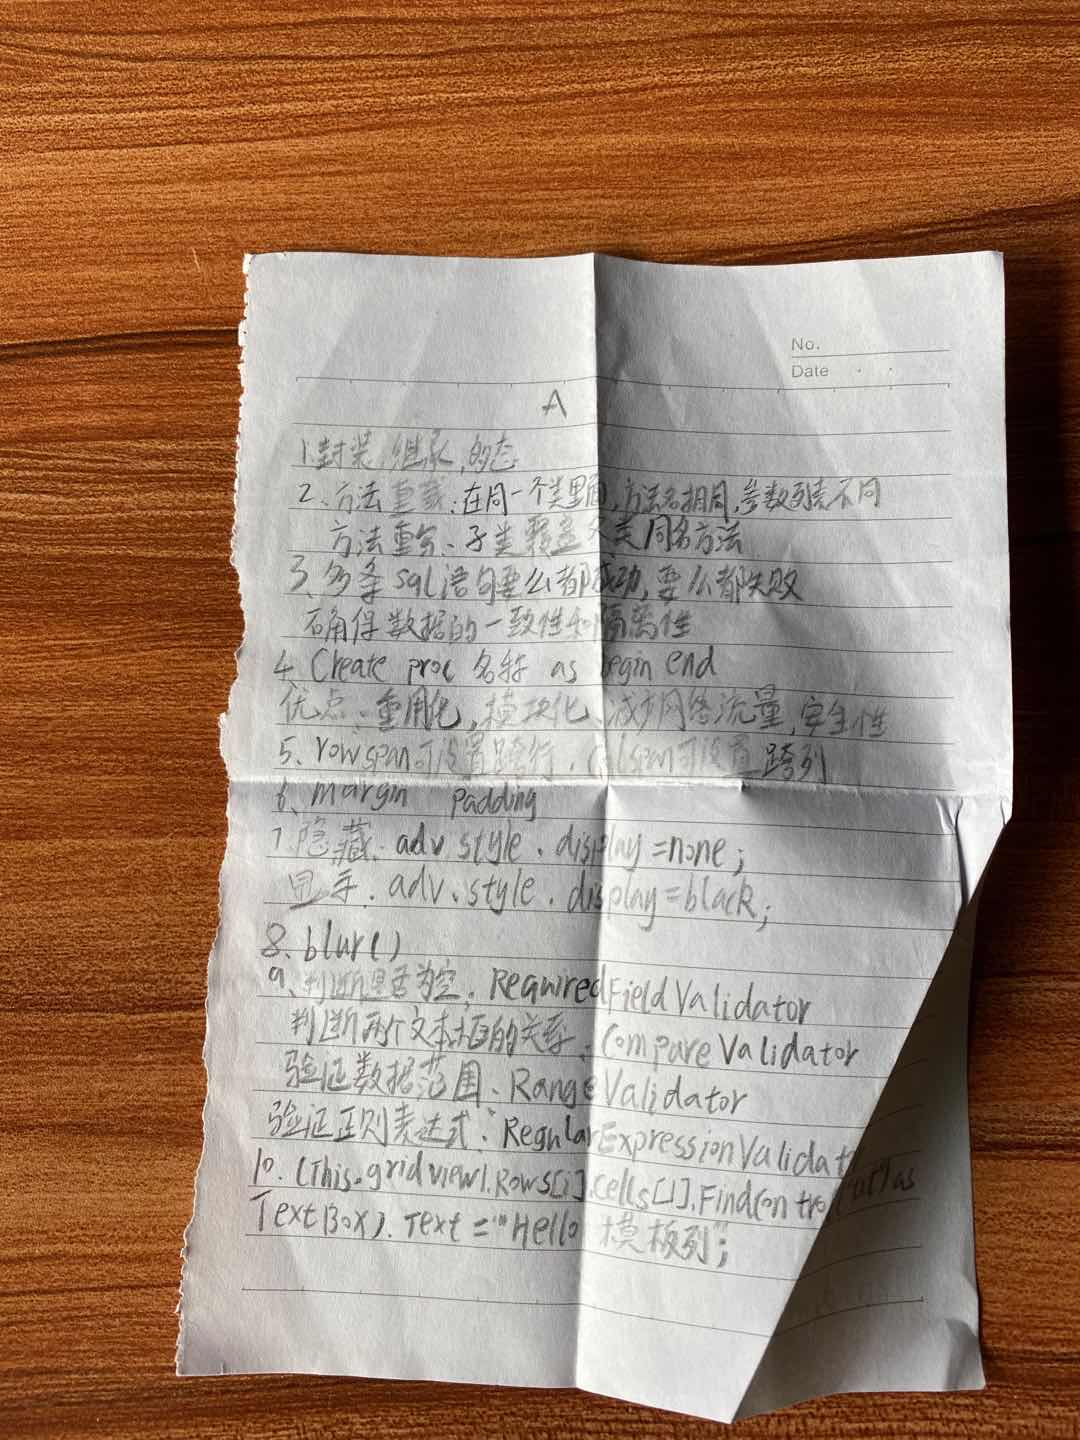 No.
Date
A
1.封装,继承,的态
2、方法重载:在同一个类里面,方法名相同,参数列表不同
方法重写、子类覆盖父类同名方法
3、多条sql语句要么都成功,要么都失败
确保数据的一致性和隔离性
4、Create proc 名称 as begin end
优点、重用化,模块化、减少网络流量,安全性
5、rowspan可设置跨行、colspan可设置跨列
6、margin padding
7.隐藏、adv.style.display=none;
显示.adv.style.display=black;
8、blur()
9、判断是否为空.RequiredFieldValidator
判断两个文本框的关系、CompareValidator
验证数据范围、RangeValidator
验证正则表达式、RegularExpressionValidat
10.(This.gridview1.Rows[i].cells[1].FindContro as
TextBox).Text="Hello 模板列";